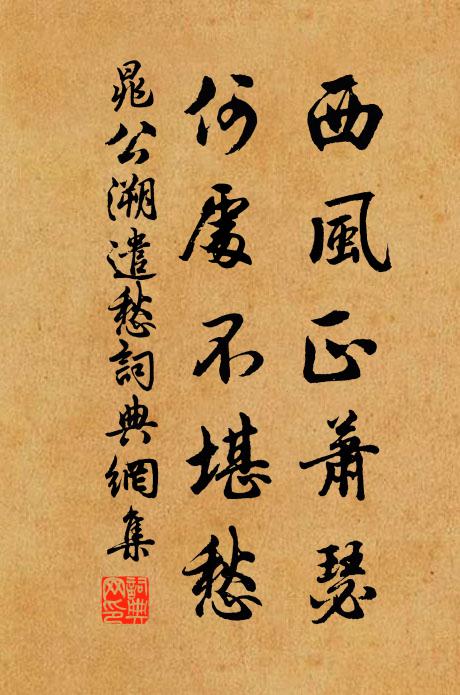 西風正蕭瑟
何處不堪愁
晁公溯遣愁詞典網集
詞典網印